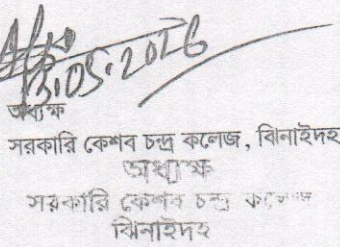 13.05.2026
অধ্যক্ষ
সরকারি কেশব চন্দ্র কলেজ, ঝিনাইদহ
অধ্যক্ষ
সরকারি কেশব চন্দ্র কলেজ
ঝিনাইদহ